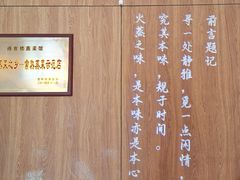 前言题记
寻一处静雅，觅一点闲情，
究其本味，规于时间。
火蒸之味，是本味亦是本心
菜之乡 蒸菜示范店